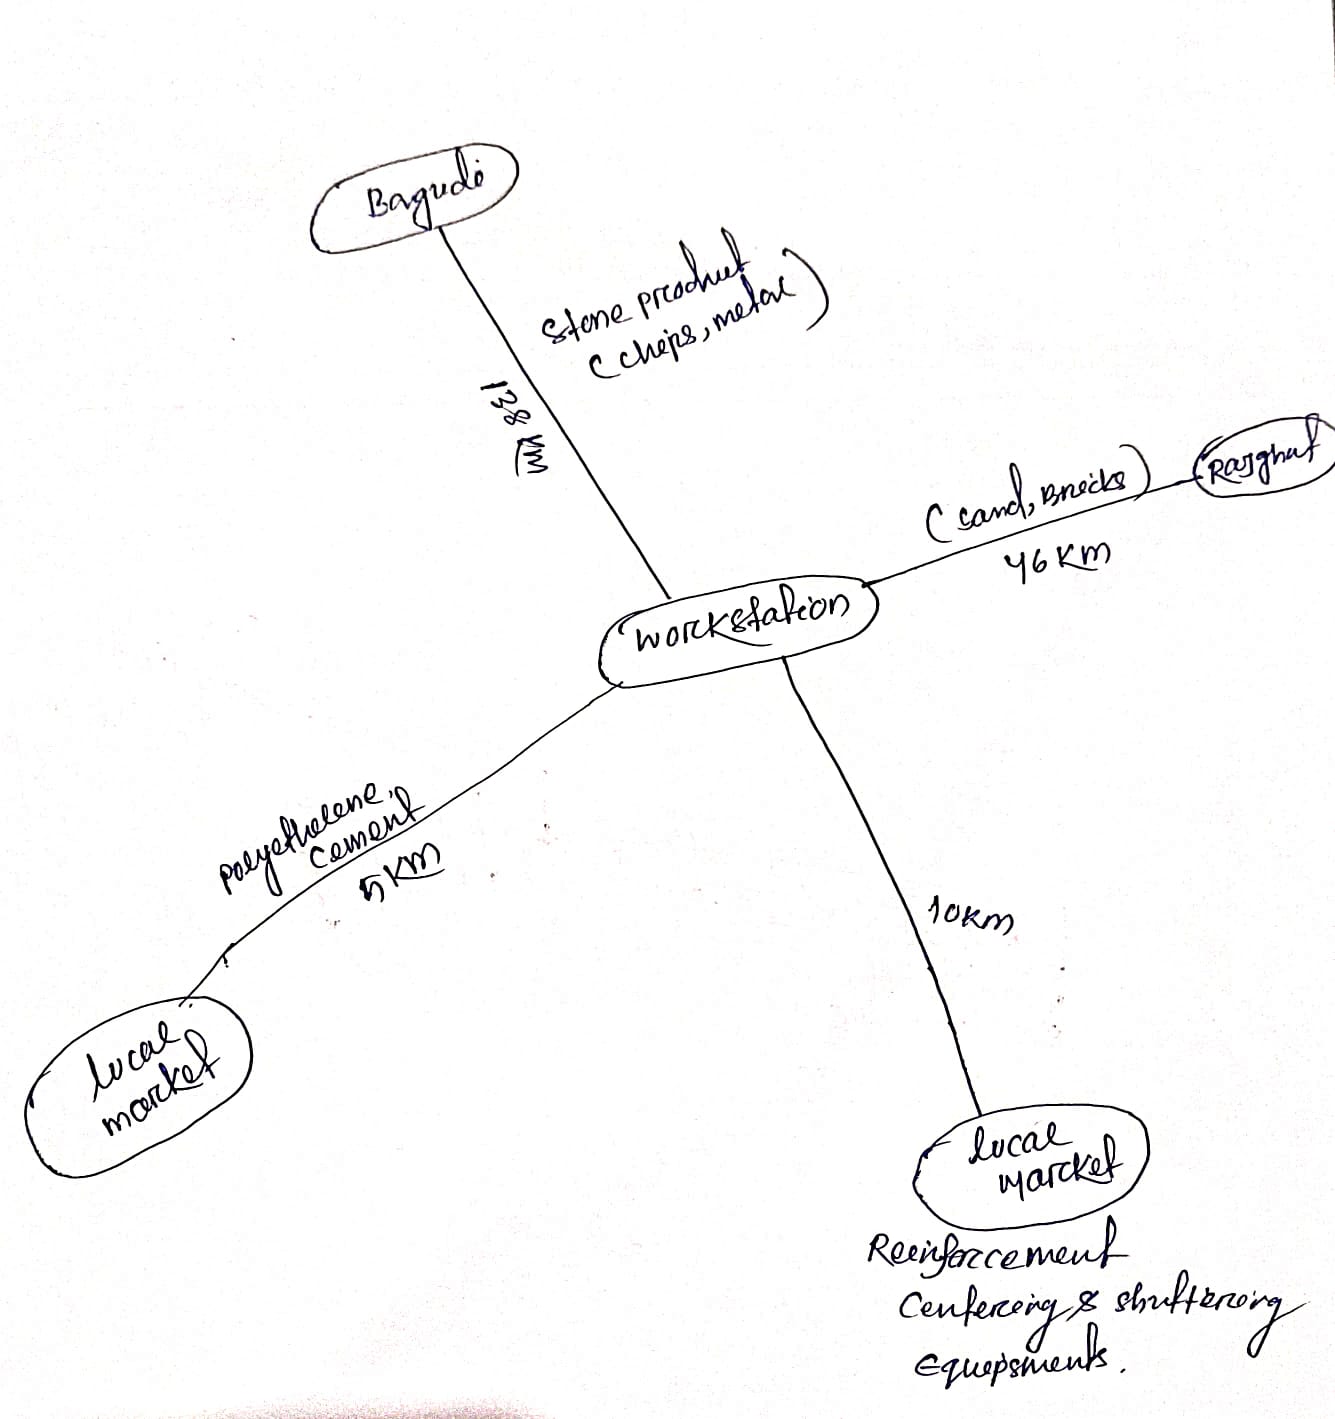 Bagudi
Stone product
(chips, metal)
138 km
(sand, Bricks)
Rajghat
46 Km
workstation
polyethelene,
cement
5 KM
10Km
local
market
local
market
Reinforcement
Centering & shuttering
Equipments.